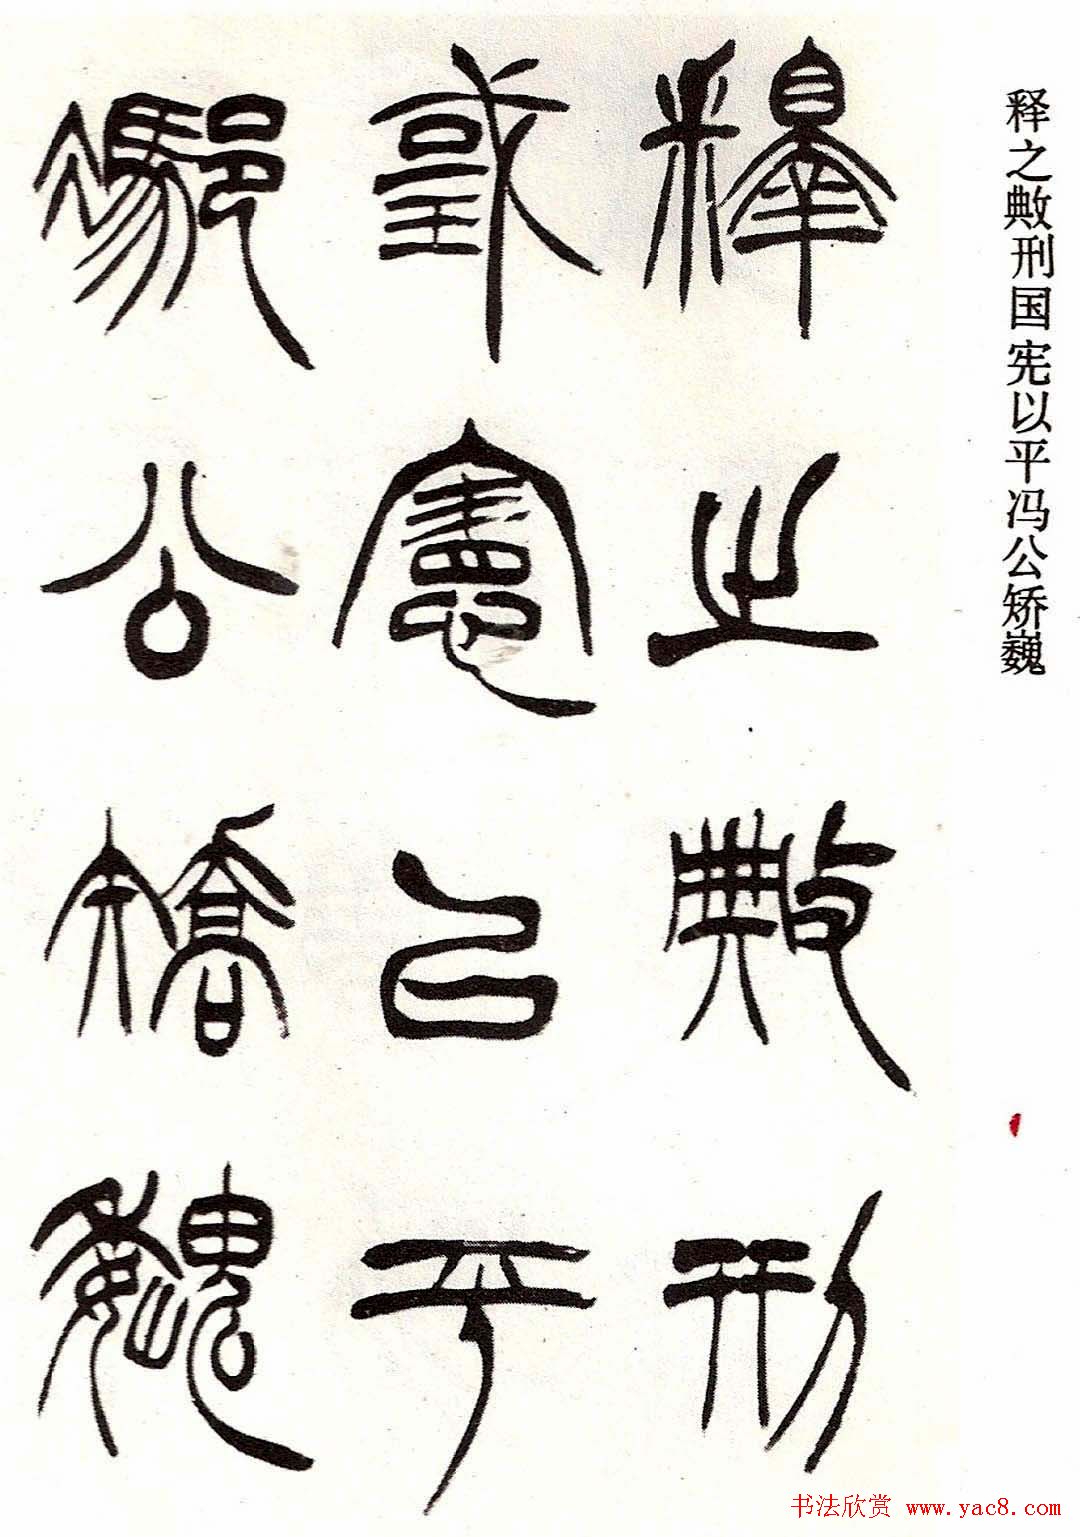 释之敟刑国宪以平冯公矫巍
釋之敟刑
國憲㠯平
馮公矯巍
书法欣赏 www.yac8.com